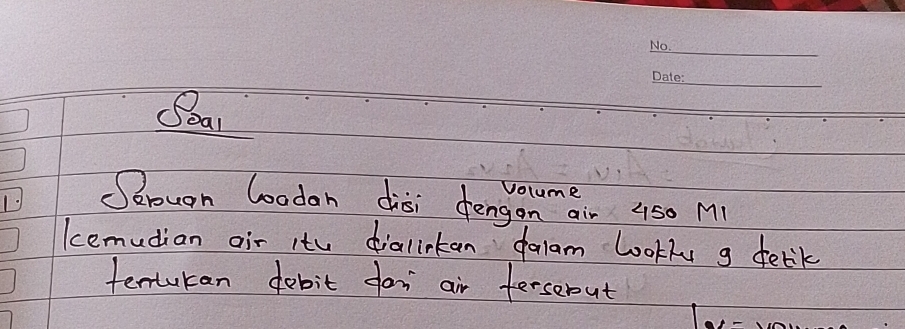 No.
Date:
Soal
1. Sebuah wadah diisi dengan volume air 450 Ml
kemudian air itu dialirkan dalam waktu 9 detik
tentukan debit dari air tersebut